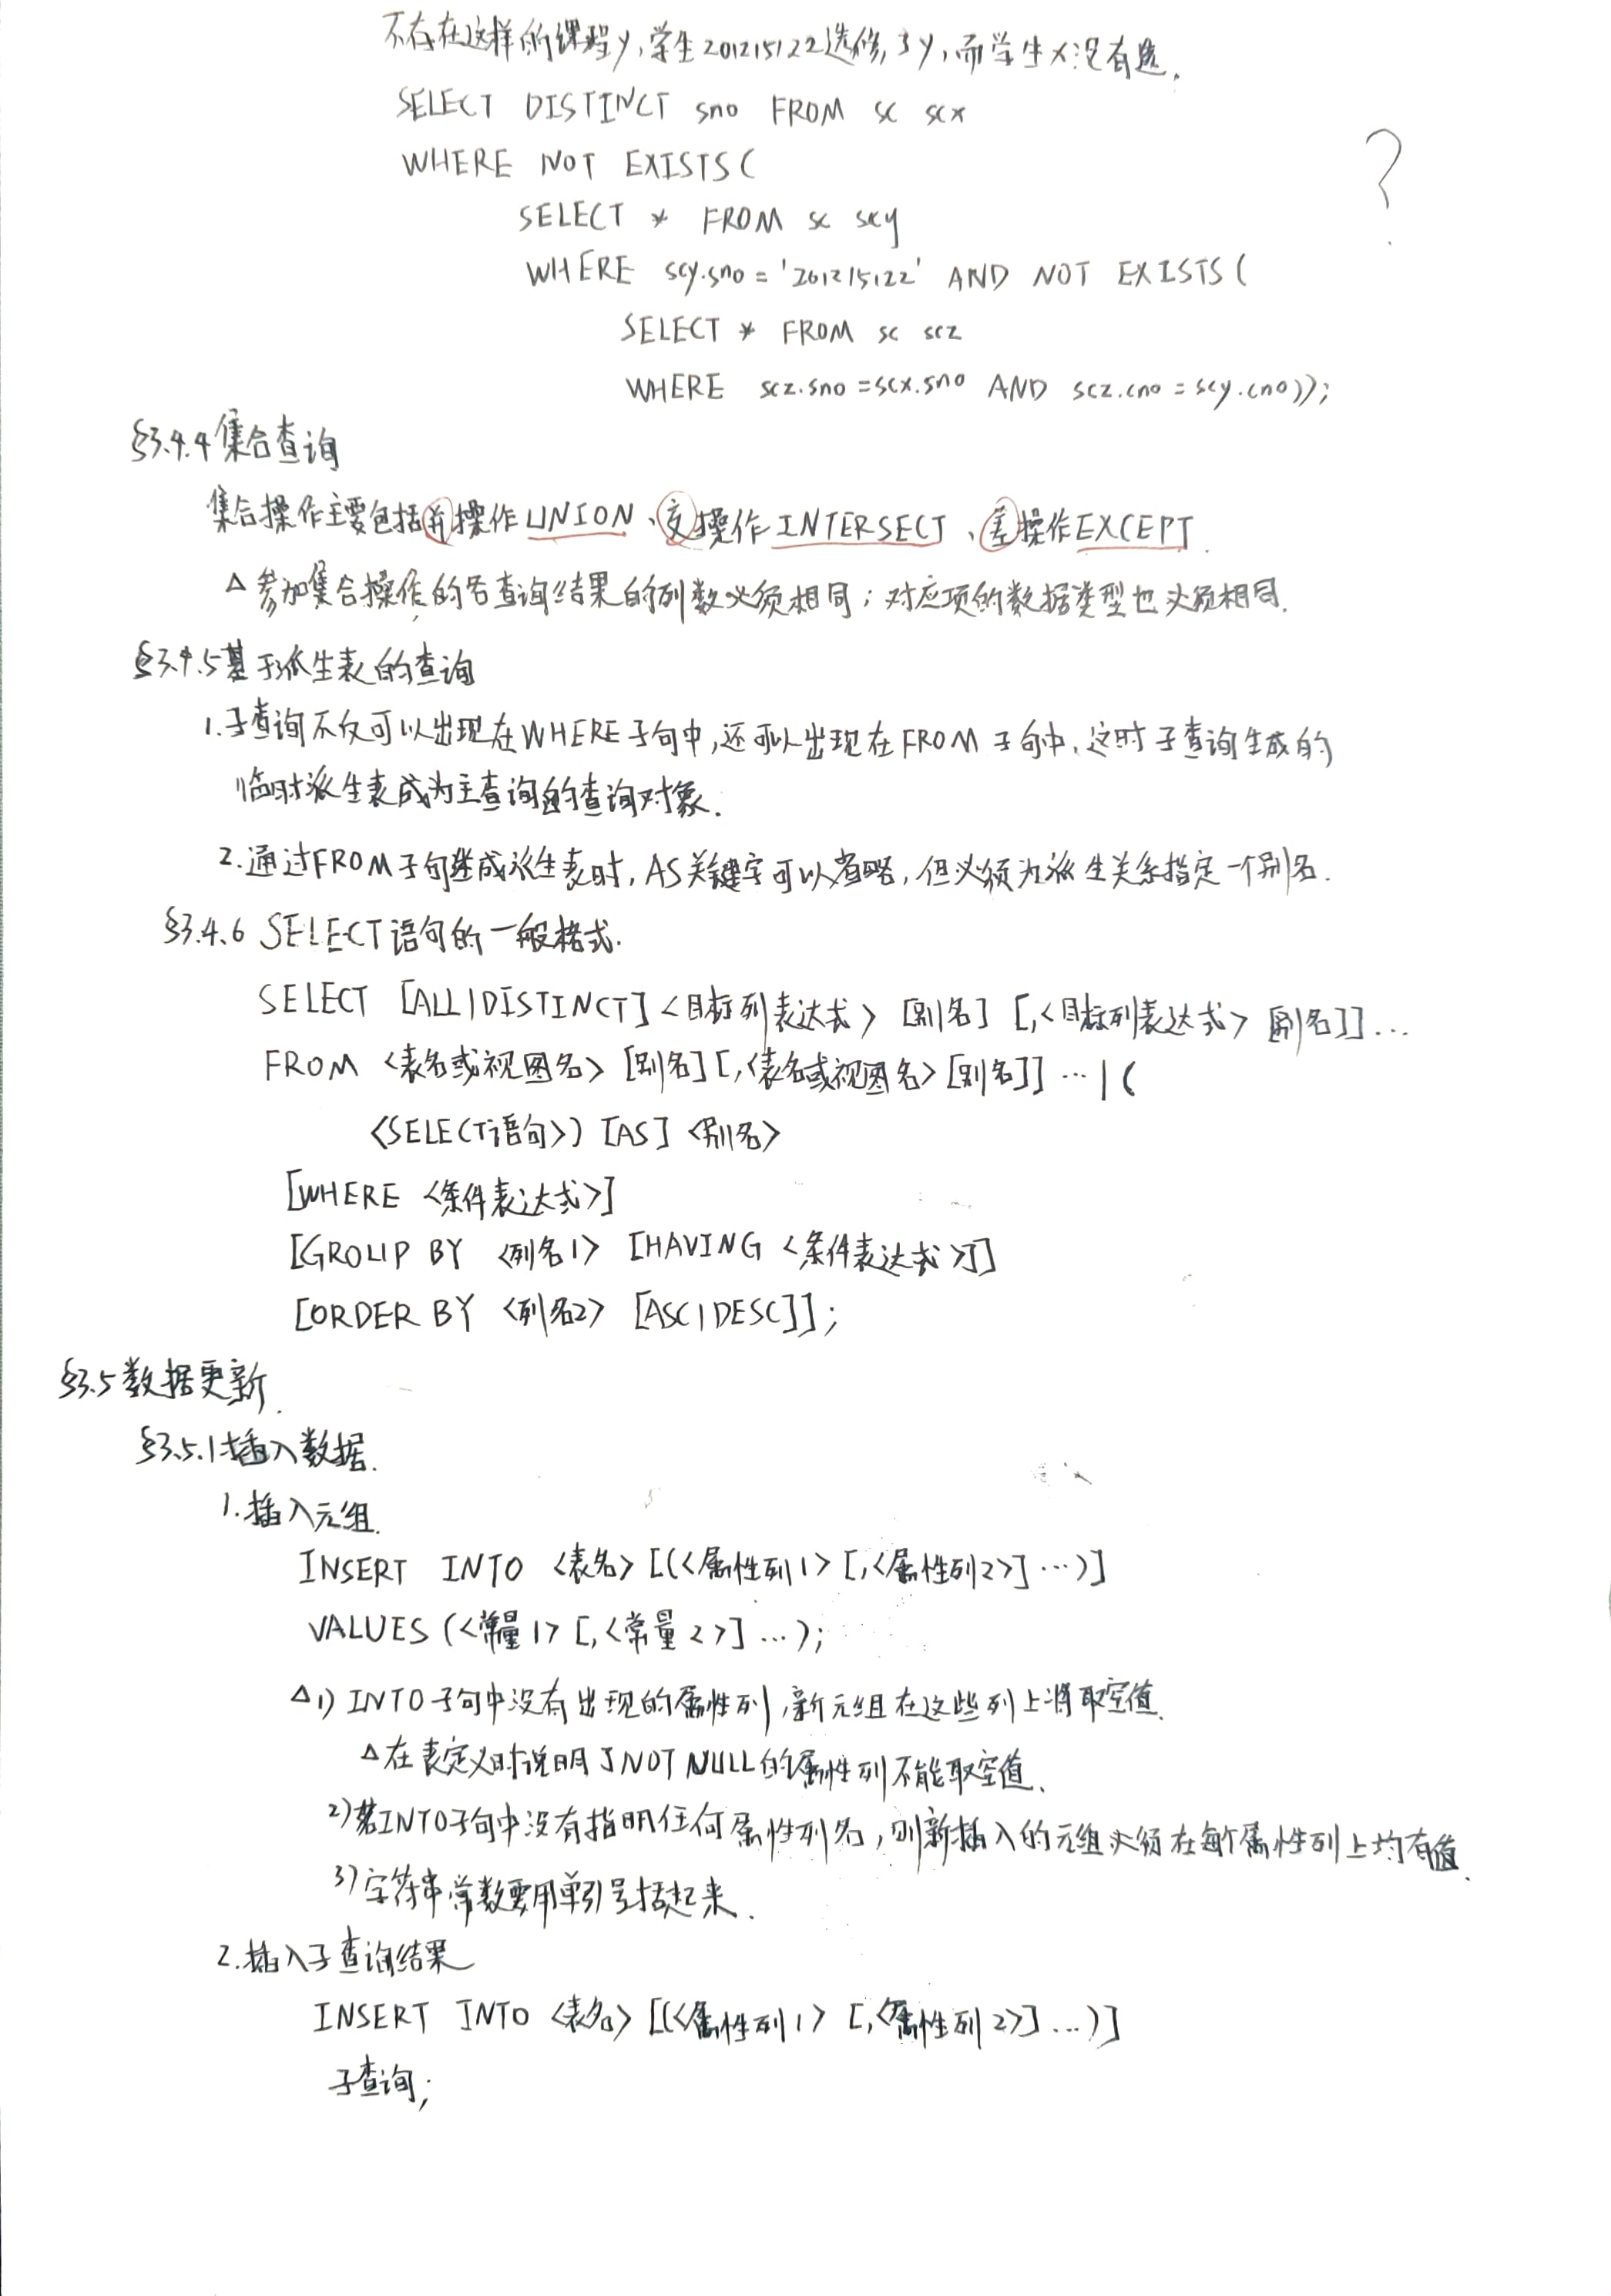 不存在这样的课程y,学生201215122选修了y,而学生x没有选.
SELECT DISTINCT sno FROM sc scx
WHERE NOT EXISTS(
?
SELECT * FROM sc scy
WHERE scy.sno = '201215122' AND NOT EXISTS(
SELECT * FROM sc scz
WHERE scz.sno = scx.sno AND scz.cno = scy.cno));
§3.4.4 集合查询
集合操作主要包括并操作UNION、交操作INTERSECT、差操作EXCEPT.
△ 参加集合操作的各查询结果的列数必须相同;对应项的数据类型也必须相同.
§3.4.5 基于派生表的查询
1.子查询不仅可以出现在WHERE子句中,还可以出现在FROM子句中,这时子查询生成的
临时派生表成为主查询的查询对象.
2.通过FROM子句生成派生表时,AS关键字可以省略,但必须为派生关系指定一个别名.
§3.4.6 SELECT语句的一般格式.
SELECT [ALL|DISTINCT] <目标列表达式> [别名] [,<目标列表达式> [别名]]...
FROM <表名或视图名> [别名] [,<表名或视图名> [别名]] ... | (
<SELECT语句>) [AS] <别名>
[WHERE <条件表达式>]
[GROUP BY <列名1> [HAVING <条件表达式>]]
[ORDER BY <列名2> [ASC|DESC]];
§3.5 数据更新.
§3.5.1 插入数据.
1.插入元组.
INSERT INTO <表名> [(<属性列1> [,<属性列2>] ...)]
VALUES (<常量1> [,<常量2>] ...);
△ 1) INTO子句中没有出现的属性列,新元组在这些列上将取空值.
△ 在表定义时说明了NOT NULL的属性列不能取空值.
2)若INTO子句中没有指明任何属性列名,则新插入的元组必须在每个属性列上均有值.
3)字符串常数要用单引号括起来.
2.插入子查询结果
INSERT INTO <表名> [(<属性列1> [,<属性列2>] ...)]
子查询;